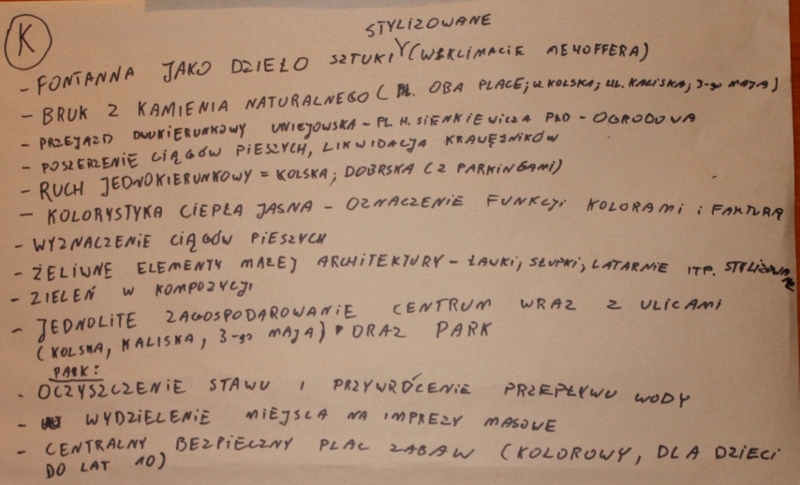 K
STYLIZOWANE
- FONTANNA JAKO DZIEŁO SZTUKI (W KLIMACIE MEHOFFERA)
- BRUK Z KAMIENIA NATURALNEGO (OBA PLACE; W. KOLSKA; UL. KALISKA; 3-go MAJA)
- PRZEJAZD DWUKIERUNKOWY UNIEJOWSKA - PL. H. SIENKIEWICZA PŁD - OGRODOVA
- POSZERZENIE CIĄGÓW PIESZYCH, LIKWIDACJA KRAWĘŻNIKÓW
- RUCH JEDNOKIERUNKOWY = KOLSKA; DOBRSKA (Z PARKINGAMI)
- KOLORYSTYKA CIEPŁA JASNA - OZNACZENIE FUNKCJI KOLORAMI i FAKTURĄ
- WYZNACZENIE CIĄGÓW PIESZYCH
- ŻELIWNE ELEMENTY MAŁEJ ARCHITEKTURY - ŁAWKI, SŁUPKI, LATARNIE ITP. STYLIZOWANE
- ZIELEŃ W KOMPOZYCJI
- JEDNOLITE ZAGOSPODAROWANIE CENTRUM WRAZ Z ULICAMI
(KOLSKA, KALISKA, 3-go MAJA) ORAZ PARK
PARK:
- OCZYSZCZENIE STAWU I PRZYWRÓCENIE PRZEPŁYWU WODY
- WYDZIELENIE MIEJSCA NA IMPREZY MASOWE
- CENTRALNY BEZPIECZNY PLAC ZABAW (KOLOROWY, DLA DZIECI
DO LAT 10)